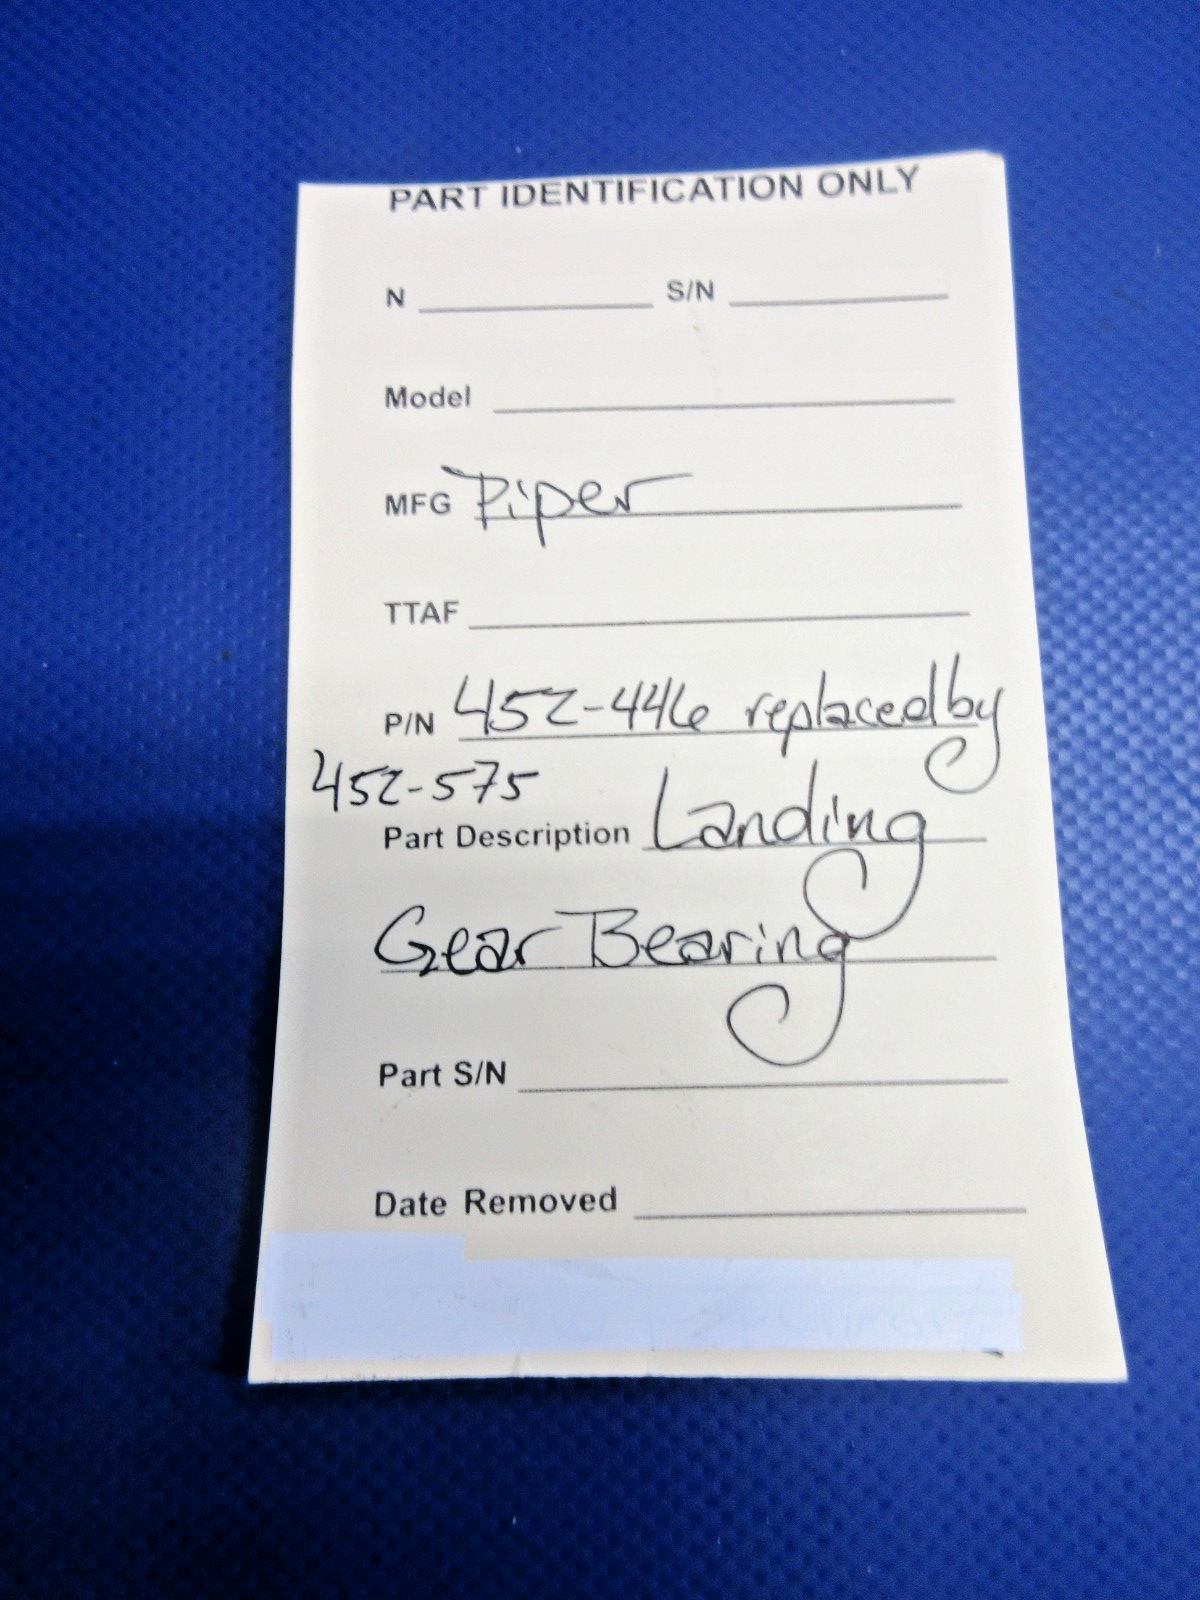 PART IDENTIFICATION ONLY
N S/N
Model
MFG Piper
TTAF
P/N 452-446 replaced by
452-575
Part Description Landing
Gear Bearing
Part S/N
Date Removed